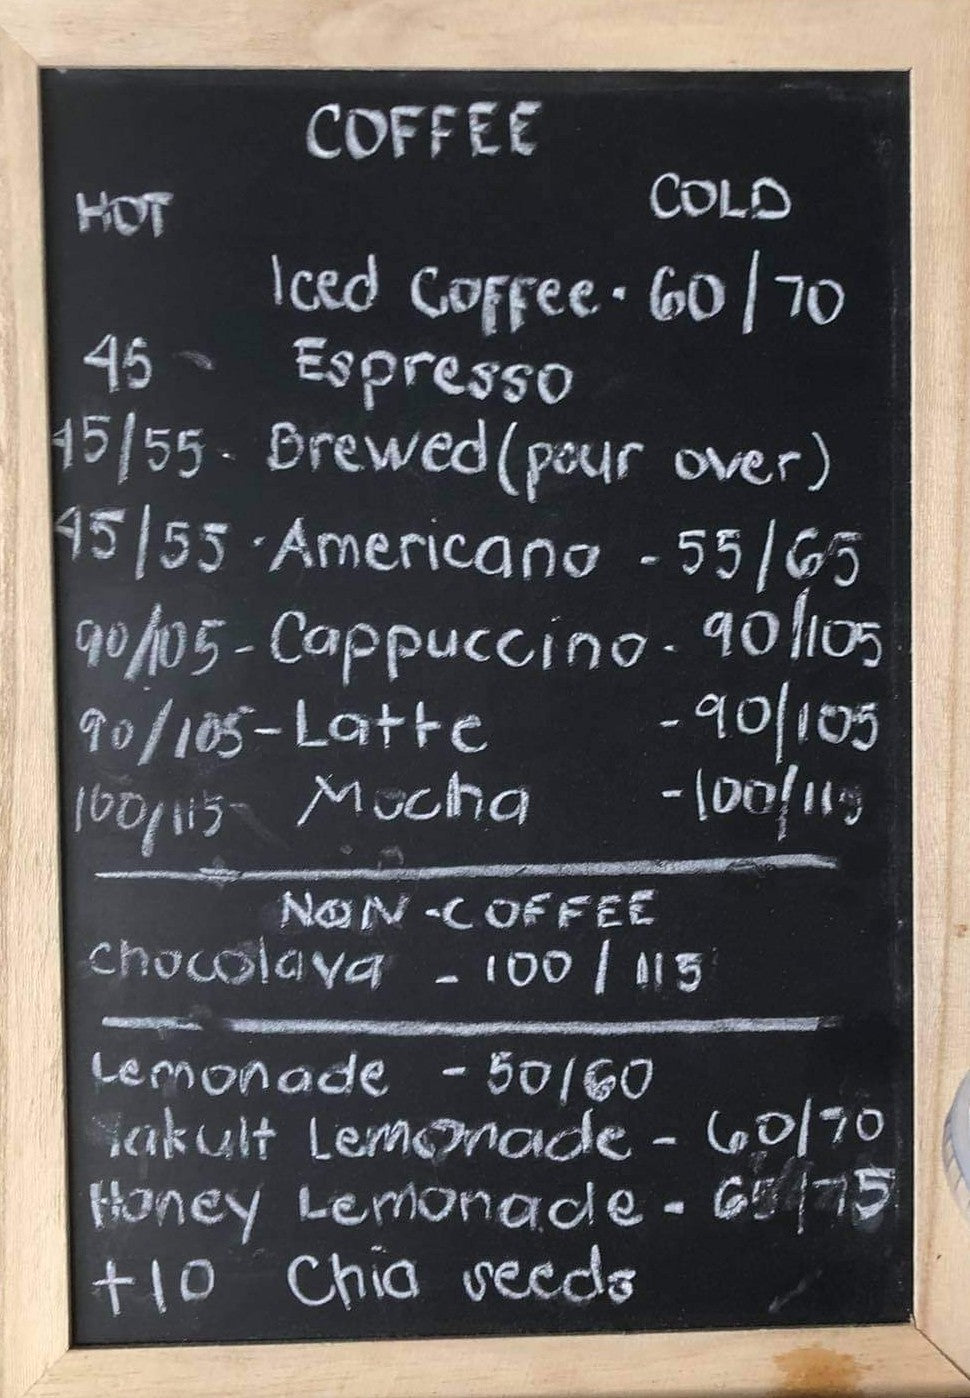 COFFEE
HOT COLD
Iced Coffee - 60/70
45 - Espresso
45/55 - Brewed (pour over)
45/55 - Americano - 55/65
90/105 - Cappuccino - 90/105
90/105 - Latte - 90/105
100/115 - Mocha - 100/115
NON-COFFEE
Chocolava - 100/115
Lemonade - 50/60
Yakult Lemonade - 60/70
Honey Lemonade - 65/75
+10 Chia seeds